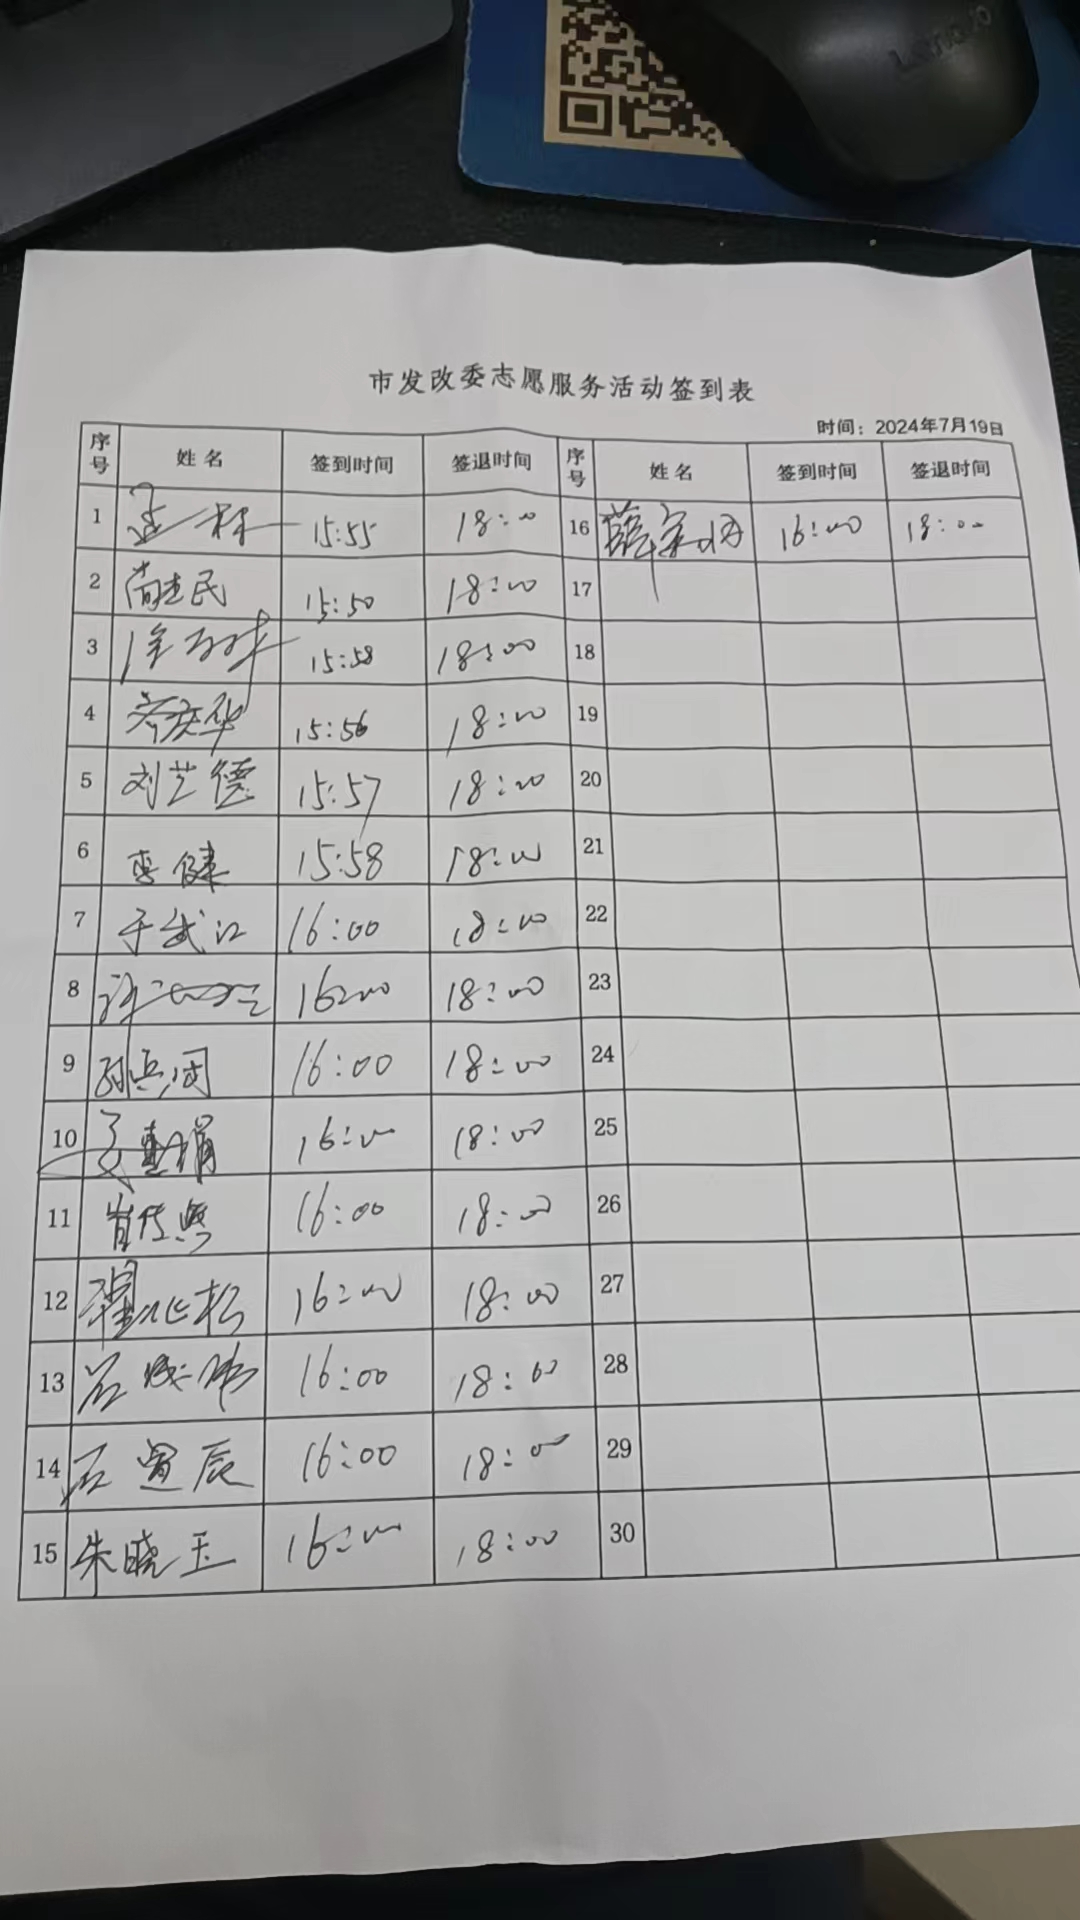 Lenovo
市发改委志愿服务活动签到表
时间：2024年7月19日
序号 姓名 签到时间 签退时间 序号 姓名 签到时间 签退时间
1 15:55 18:00 16 薛 16:00 18:00
2 尚志民 15:50 18:00 17
3 徐 15:58 18:00 18
4 齐庆华 15:56 18:00 19
5 刘艺德 15:57 18:00 20
6 李健 15:58 18:00 21
7 于武江 16:00 18:00 22
8 许 16:00 18:00 23
9 孙兵 16:00 18:00 24
10 16:00 18:00 25
11 肖传 16:00 18:00 26
12 松 16:00 18:00 27
13 16:00 18:00 28
14 石 辰 16:00 18:00 29
15 朱晓玉 16:00 18:00 30